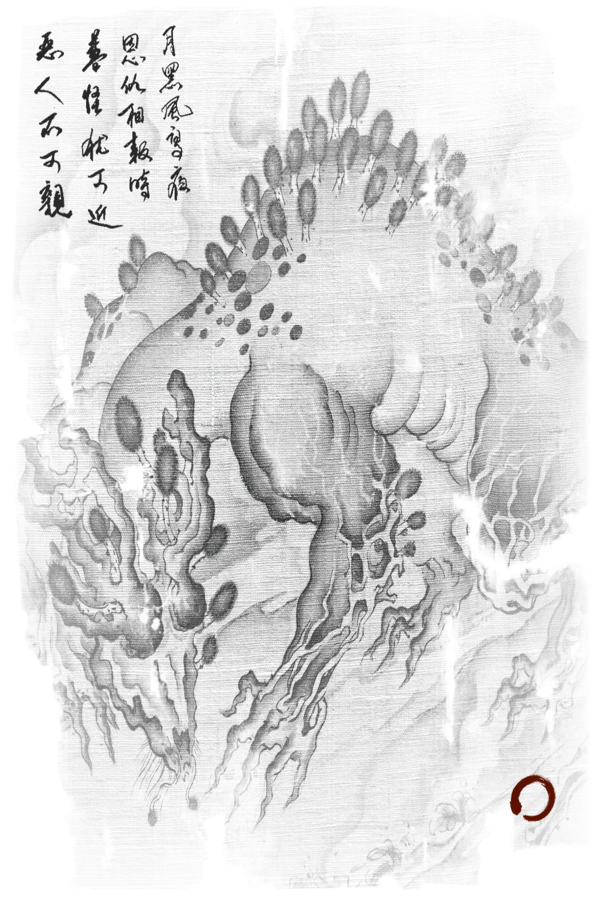 月黑風高夜
恩仇相報時
善怪犹可近
惡人不可親